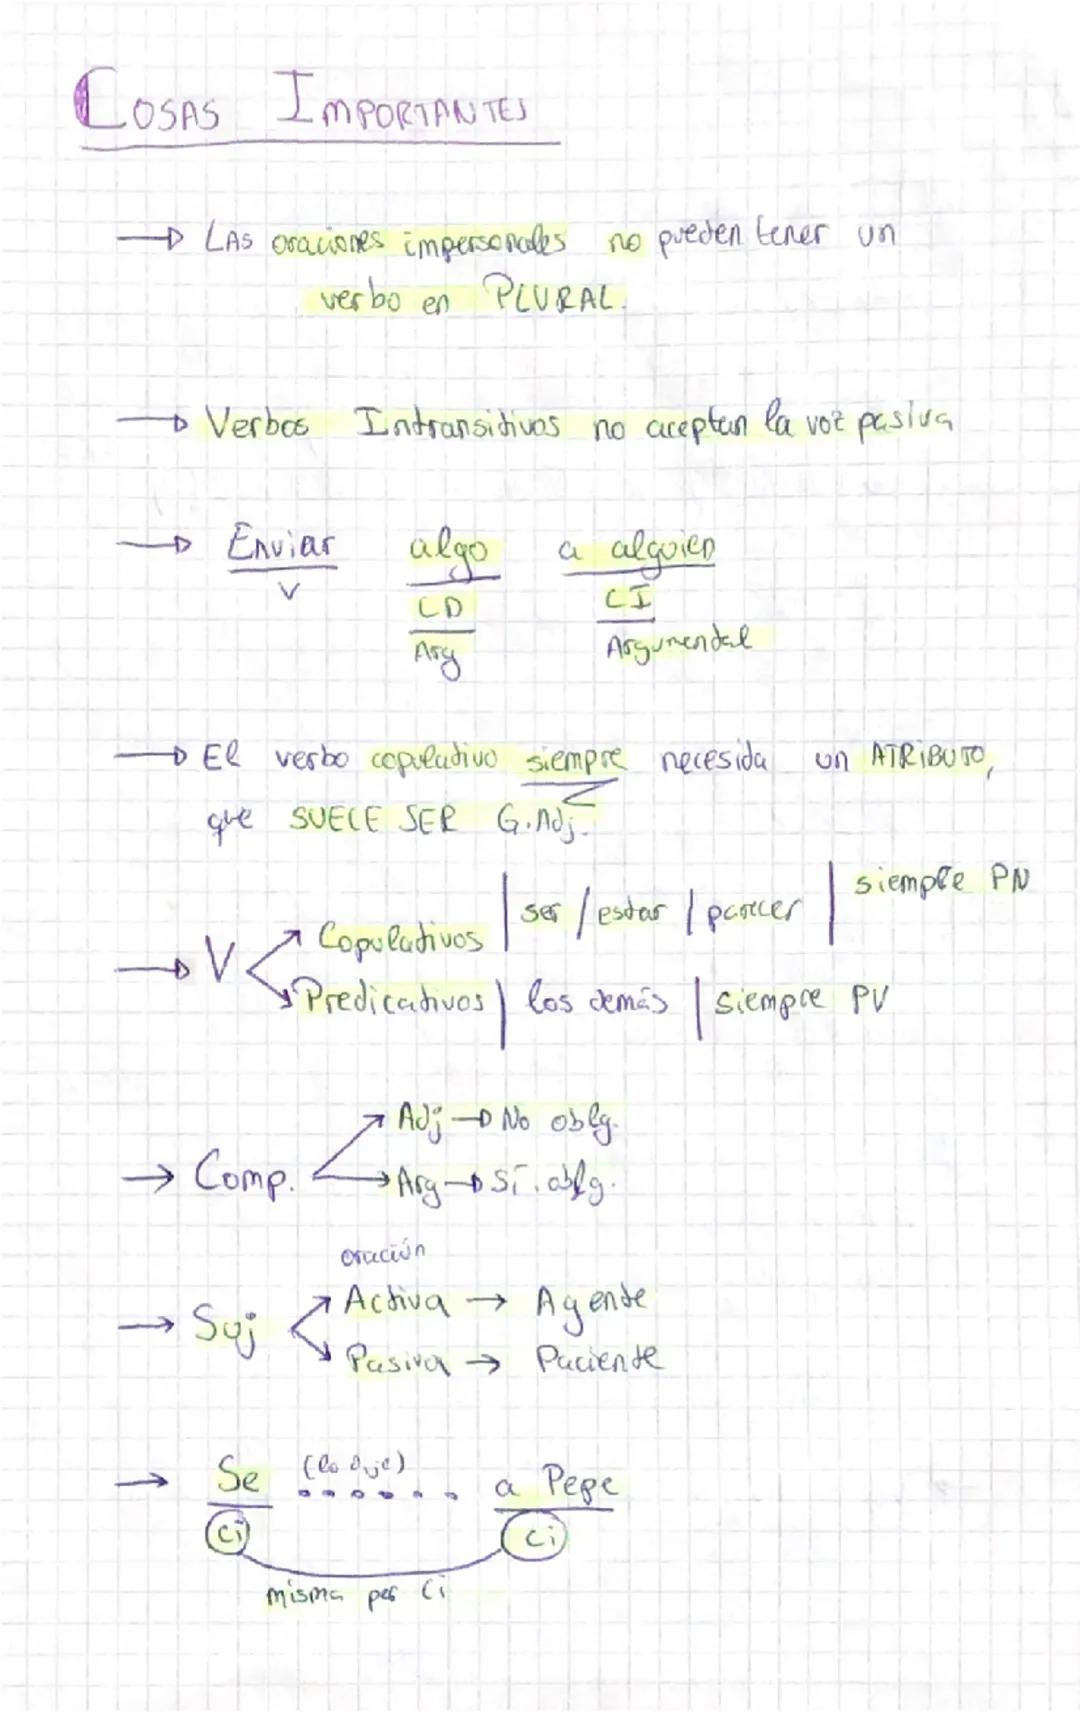 COSAS IMPORTANTES
→ LAS oraciones impersonales no pueden tener un
verbo en PLURAL.
→ Verbos Intransitivos no aceptan la voz pasiva
→ Enviar algo a alguien
V CD CI
Arg Argumental
→ El verbo copulativo siempre necesida un ATRIBUTO,
que SUELE SER G.Adj.
→ V Copulativos | ser / estar / parecer | siempre PN
Predicativos | los demás | siempre PV
→ Comp. Adj → No oblg.
Arg → Sí. oblg.
oración
→ Suj Activa → Agente
Pasiva → Paciente
→ Se (lo dije) ...... a Pepe
Ci Ci
misma per Ci